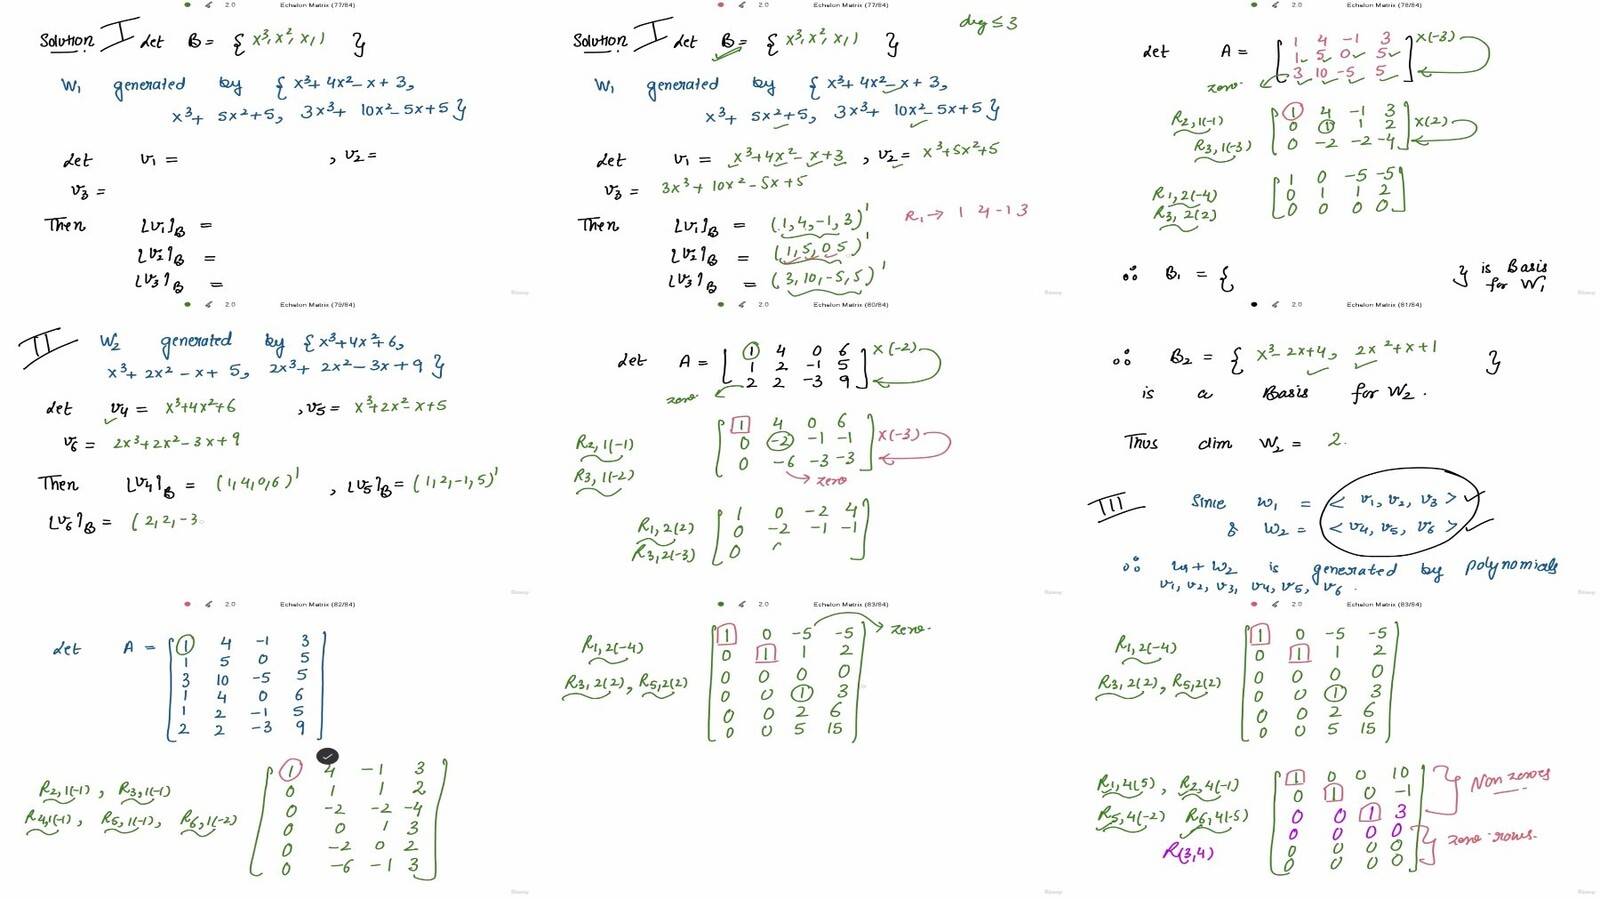 2.0 Echelon Matrix (77/84)
Solution I Let B = { x³, x², x, 1 }
W₁ generated by { x³+4x²-x+3,
x³+5x²+5, 3x³+10x²-5x+5 }
Let v₁ = , v₂ =
v₃ =
Then [v₁]_B =
[v₂]_B =
[v₃]_B =
2.0 Echelon Matrix (77/84)
deg ≤ 3
Solution I Let B = { x³, x², x, 1 }
W₁ generated by { x³+4x²-x+3,
x³+5x²+5, 3x³+10x²-5x+5 }
Let v₁ = x³+4x²-x+3, v₂ = x³+5x²+5
v₃ = 3x³+10x²-5x+5
Then [v₁]_B = (1,4,-1,3)' R₁ → 1 4 -1 3
[v₂]_B = (1,5,0 5)'
[v₃]_B = (3,10,-5,5)'
2.0 Echelon Matrix (78/84)
Let A =
1 4 -1 3 x(-3)
1 5 0 5
3 10 -5 5
zero
R2,1(-1)
R3,1(-3)
1 4 -1 3
0 1 1 2 x(2)
0 -2 -2 -4
R1,2(-4)
R3,2(2)
1 0 -5 -5
0 1 1 2
0 0 0 0
∴ B₁ = { } is Basis
for W₁
2.0 Echelon Matrix (79/84)
II W₂ generated by { x³+4x²+6,
x³+2x²-x+5, 2x³+2x²-3x+9 }
Let v₄ = x³+4x²+6 , v₅ = x³+2x²-x+5
v₆ = 2x³+2x²-3x+9
Then [v₄]_B = (1,4,0,6)' , [v₅]_B = (1,2,-1,5)'
[v₆]_B = (2,2,-3
2.0 Echelon Matrix (80/84)
Let A =
1 4 0 6 x(-2)
1 2 -1 5
2 2 -3 9
zero
R2,1(-1)
R3,1(-2)
1 4 0 6
0 -2 -1 -1 x(-3)
0 -6 -3 -3
zero
R1,2(2)
R3,2(-3)
1 0 -2 4
0 -2 -1 -1
0
2.0 Echelon Matrix (81/84)
∴ B₂ = { x³-2x+4, 2x²+x+1 }
is a Basis for W₂.
Thus dim W₂ = 2.
III Since W₁ = < v₁, v₂, v₃ >
& W₂ = < v₄, v₅, v₆ >
∴ W₁+W₂ is generated by polynomials
v₁, v₂, v₃, v₄, v₅, v₆.
2.0 Echelon Matrix (82/84)
Let A =
1 4 -1 3
1 5 0 5
3 10 -5 5
1 4 0 6
1 2 -1 5
2 2 -3 9
R2,1(-1), R3,1(-1)
R4,1(-1), R5,1(-1), R6,1(-2)
1 4 -1 3
0 1 1 2
0 -2 -2 -4
0 0 1 3
0 -2 0 2
0 -6 -1 3
2.0 Echelon Matrix (83/84)
R1,2(-4)
R3,2(2), R5,2(2)
1 0 -5 -5 zero
0 1 1 2
0 0 0 0
0 0 1 3
0 0 2 6
0 0 5 15
2.0 Echelon Matrix (83/84)
R1,2(-4)
R3,2(2), R5,2(2)
1 0 -5 -5
0 1 1 2
0 0 0 0
0 0 1 3
0 0 2 6
0 0 5 15
R1,4(5), R2,4(-1)
R5,4(-2) R6,4(-5)
R(3,4)
1 0 0 10
0 1 0 -1
0 0 1 3
0 0 0 0
0 0 0 0
0 0 0 0
Non zeroes
zero rows.